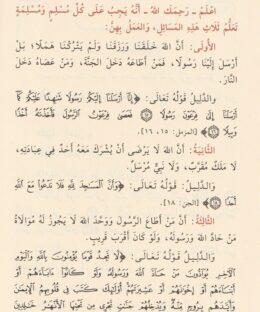 اعْلَمْ ـ رَحِمَكَ اللهُ ـ أَنَّهُ يَجِبُ عَلَى كُلِّ مُسْلِمٍ وَمُسْلِمَةٍ
تَعَلُّمُ ثَلَاثِ هَذِهِ المَسَائِلِ، وَالعَمَلُ بِهِنَّ:
الأُولَى: أَنَّ اللهَ خَلَقَنَا وَرَزَقَنَا وَلَمْ يَتْرُكْنَا هَمَلًا؛ بَلْ
أَرْسَلَ إِلَيْنَا رَسُولًا، فَمَنْ أَطَاعَهُ دَخَلَ الجَنَّةَ، وَمَنْ عَصَاهُ دَخَلَ
النَّارَ.
وَالدَّلِيلُ قَوْلُهُ تَعَالَى: ﴿إِنَّا أَرْسَلْنَا إِلَيْكُمْ رَسُولًا شَاهِدًا عَلَيْكُمْ كَمَا
أَرْسَلْنَا إِلَى فِرْعَوْنَ رَسُولًا ۝ فَعَصَى فِرْعَوْنُ الرَّسُولَ فَأَخَذْنَاهُ أَخْذًا
وَبِيلًا ۝﴾ [المزمل: ١٥، ١٦].
الثَّانِيَةُ: أَنَّ اللهَ لَا يَرْضَى أَنْ يُشْرَكَ مَعَهُ أَحَدٌ فِي عِبَادَتِهِ،
لَا مَلَكٌ مُقَرَّبٌ، وَلَا نَبِيٌّ مُرْسَلٌ.
وَالدَّلِيلُ قَوْلُهُ تَعَالَى: ﴿وَأَنَّ الْمَسَاجِدَ لِلَّهِ فَلَا تَدْعُوا مَعَ اللَّهِ
أَحَدًا ۝﴾ [الجن: ١٨].
الثَّالِثَةُ: أَنَّ مَنْ أَطَاعَ الرَّسُولَ وَوَحَّدَ اللهَ لَا يَجُوزُ لَهُ مُوَالَاةُ
مَنْ حَادَّ اللهَ وَرَسُولَهُ، وَلَوْ كَانَ أَقْرَبَ قَرِيبٍ.
وَالدَّلِيلُ قَوْلُهُ تَعَالَى: ﴿لَا تَجِدُ قَوْمًا يُؤْمِنُونَ بِاللَّهِ وَالْيَوْمِ
الْآخِرِ يُوَادُّونَ مَنْ حَادَّ اللَّهَ وَرَسُولَهُ وَلَوْ كَانُوا آبَاءَهُمْ أَوْ
أَبْنَاءَهُمْ أَوْ إِخْوَانَهُمْ أَوْ عَشِيرَتَهُمْ أُولَئِكَ كَتَبَ فِي قُلُوبِهِمُ الْإِيمَانَ
وَأَيَّدَهُمْ بِرُوحٍ مِنْهُ وَيُدْخِلُهُمْ جَنَّاتٍ تَجْرِي مِنْ تَحْتِهَا الْأَنْهَارُ خَالِدِينَ